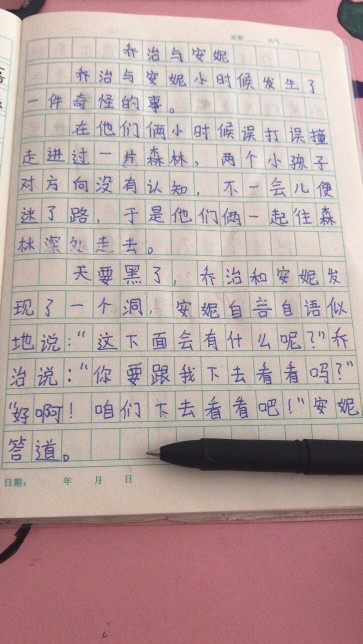 星期 天气
乔治与安妮
乔治与安妮小时候发生了
一件奇怪的事。
在他们俩小时候误打误撞
走进过一片森林，两个小孩子
对方向没有认知，不一会儿便
迷了路，于是他们俩一起往森
林深处走去。
天要黑了，乔治和安妮发
现了一个洞，安妮自言自语似
地说：“这下面会有什么呢？”乔
治说：“你要跟我下去看看吗？”
“好啊！咱们下去看看吧！”安妮
答道。
日期： 年 月 日